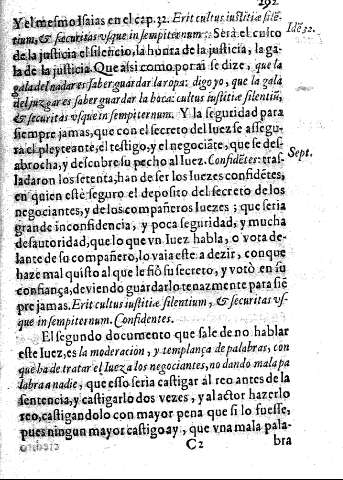 192
Y el mesmo Isaias en el cap. 32. Erit cultus iustitiæ silē-
tium, & securitas vsque in sempiternum: Sera el culto
de la justicia el silencio, la hōra de la justicia, la ga-
la de la justicia. Que assi como por aì se dize, que la
gala del nadar es saber guardar la ropa: digo yo, que la gala
del juzgar es saber guardar la boca: cultus iustitiæ silentiū,
& securitas vsque in sempiternum. Y la seguridad para
siempre jamas, que con el secreto del Iuez se assegu-
ra el pleyteante, el testigo, y el negociāte, que se des-
abrocha, y descubre su pecho al Iuez. Confidētes: tras-
ladaron los setenta, han de ser los Iuezes confidētes,
en quien estè seguro el deposito del secreto de los
negociantes, y de los compañeros Iuezes; que seria
grande inconfidencia, y poca seguridad, y mucha
desautoridad, que lo que vn Iuez habla, o vota de-
lante de su compañero, lo vaia este a dezir, con que
haze mal quisto al que le fiò su secreto, y votò en su
confiança, deviendo guardarlo tenazmente para siē
pre jamas. Erit cultus iustitiæ silentium, & securitas vs-
que in sempiternum. Confidentes.
El segundo documento que sale de no hablar
este Iuez, es la moderacion, y templança de palabras, con
que ha de tratar el Iuez a los negociantes, no dando mala pa
labra a nadie, que esso seria castigar al reo antes de la
sentencia, y castigarlo dos vezes, y al actor hazerlo
reo, castigandolo con mayor pena que si lo fuesse,
pues ningun mayor castigo ay, que vna mala pala-
C2 bra
Idē 32.
Sept.